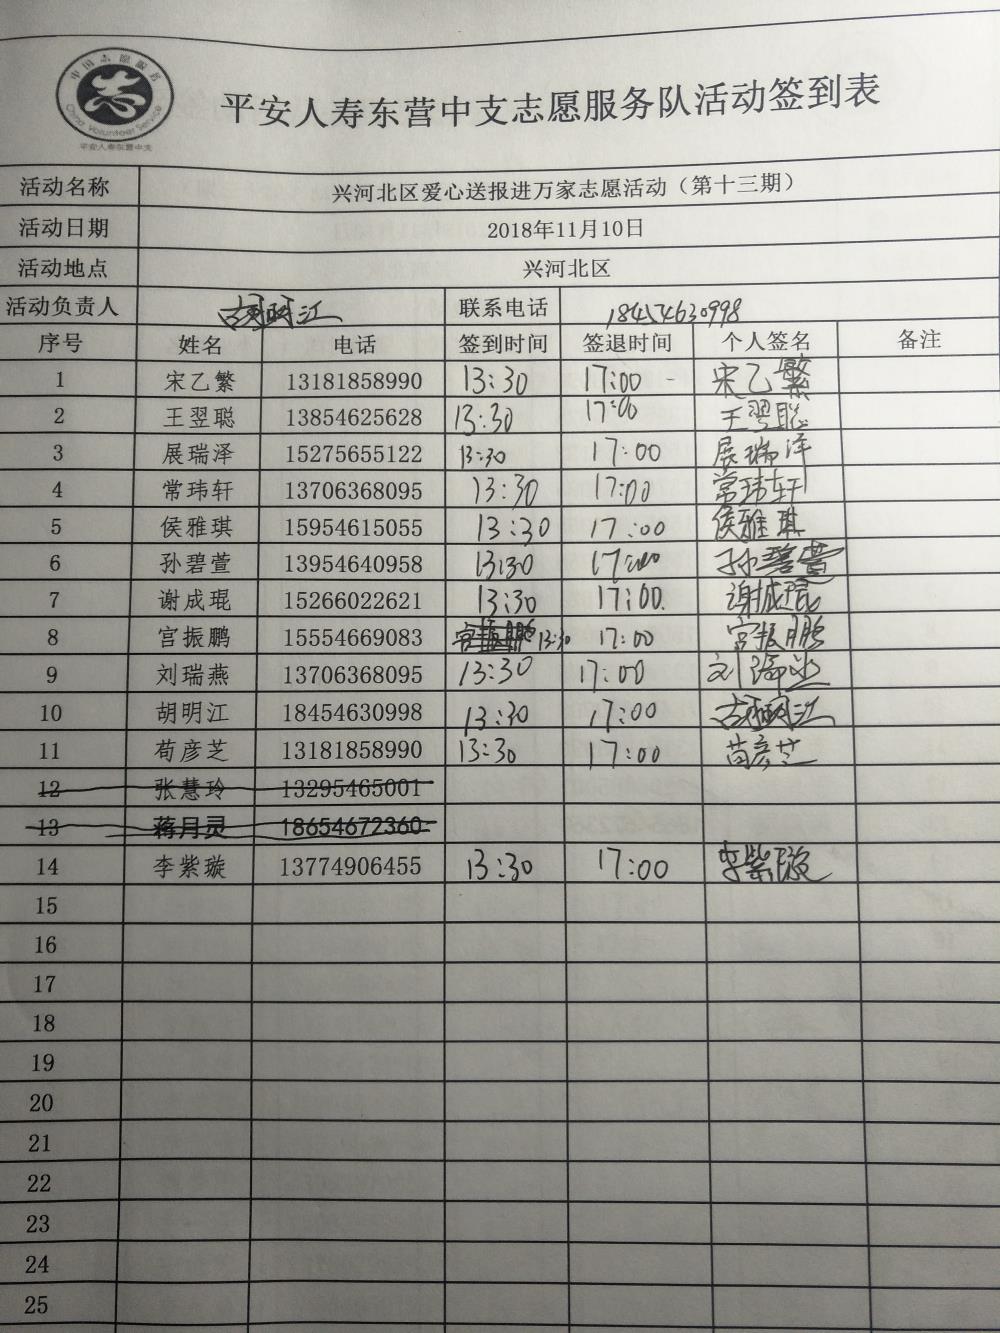 中国志愿服务
China Volunteer Service
平安人寿东营中支
平安人寿东营中支志愿服务队活动签到表
活动名称 兴河北区爱心送报进万家志愿活动（第十三期）
活动日期 2018年11月10日
活动地点 兴河北区
活动负责人 胡明江 联系电话 18454630998
序号 姓名 电话 签到时间 签退时间 个人签名 备注
1 宋乙繁 13181858990 13:30 17:00 宋乙繁
2 王翌聪 13854625628 13:30 17:00 王翌聪
3 展瑞泽 15275655122 13:30 17:00 展瑞泽
4 常玮轩 13706368095 13:30 17:00 常玮轩
5 侯雅琪 15954615055 13:30 17:00 侯雅琪
6 孙碧萱 13954640958 13:30 17:00 孙碧萱
7 谢成琨 15266022621 13:30 17:00. 谢成琨
8 宫振鹏 15554669083 宫振鹏 13:30 17:00 宫振鹏
9 刘瑞燕 13706368095 13:30 17:00 刘瑞燕
10 胡明江 18454630998 13:30 17:00 胡明江
11 荀彦芝 13181858990 13:30 17:00 苗彦芝
12 张慧玲 13295465001
13 蒋月灵 18654672360
14 李紫璇 13774906455 13:30 17:00 李紫璇
15
16
17
18
19
20
21
22
23
24
25